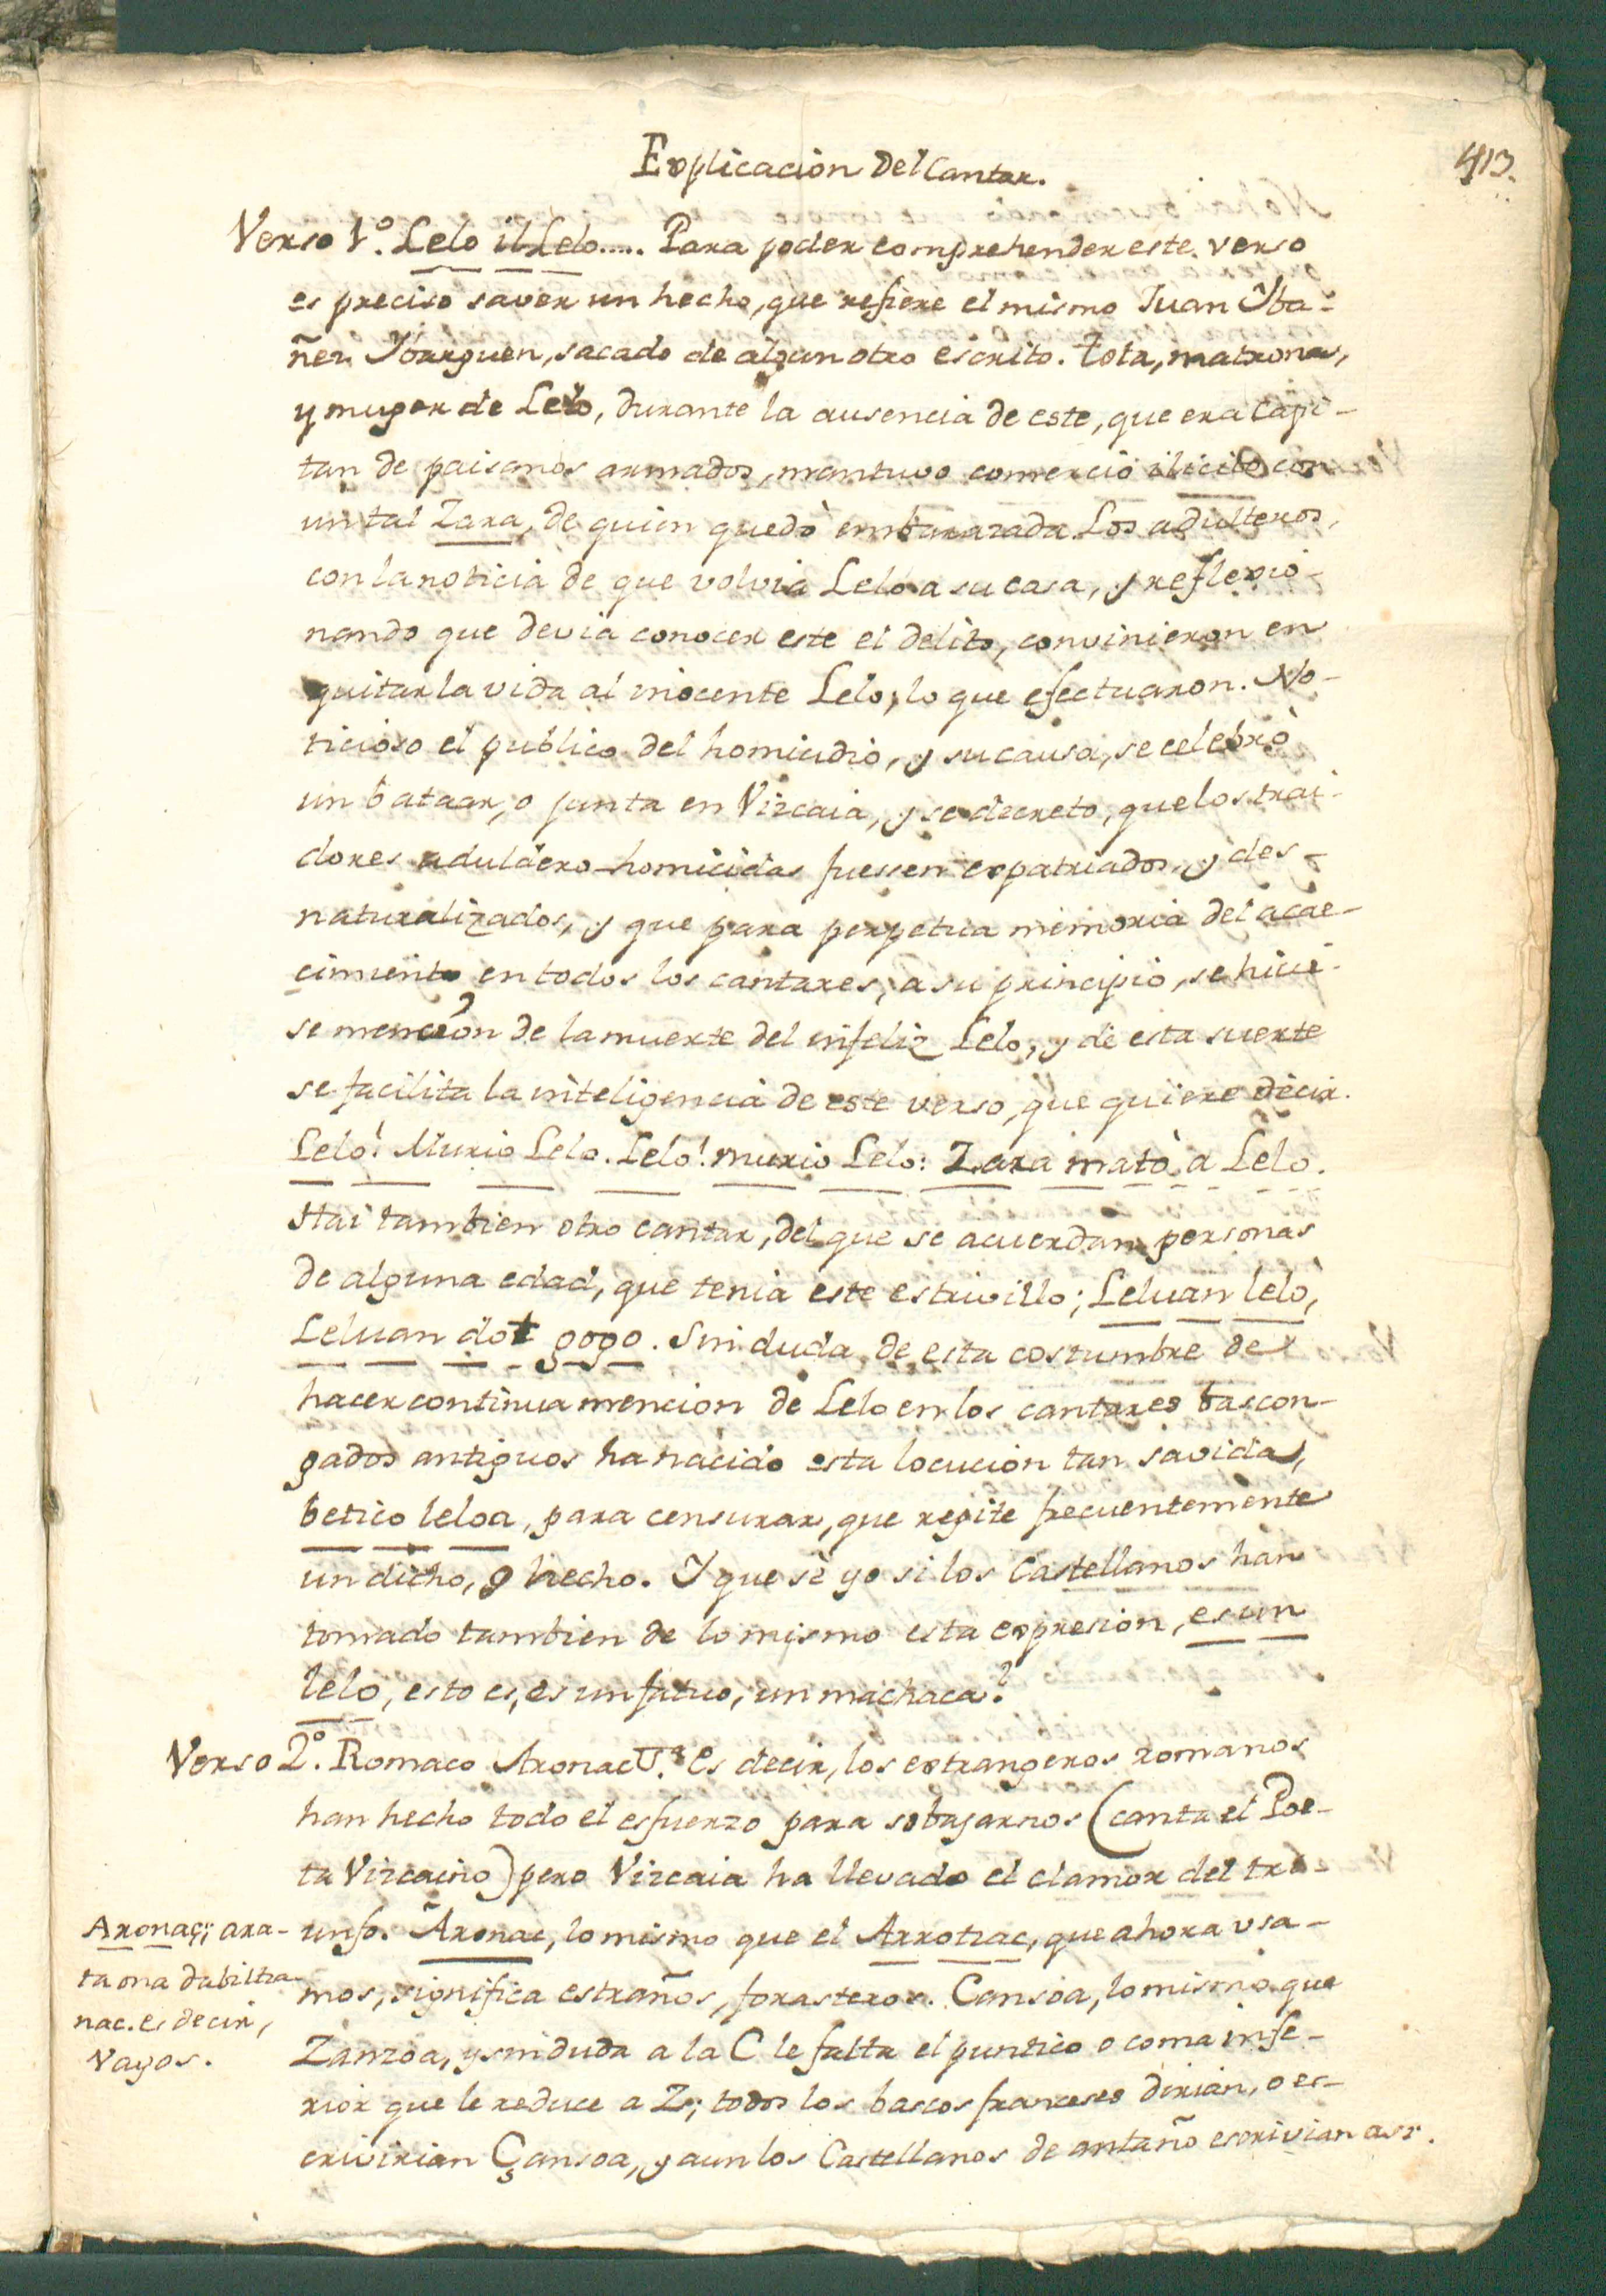 413.
Explicacion Del Cantar.
Verso 1º. Lelo il Lelo..... Para poder comprehender este verso
es preciso saver un hecho, que refiere el mismo Juan Yba-
ñez Ybarguen, sacado de algun otro escrito. Tota, matrona,
y muger de Lelo, durante la ausencia de este, que era Capi-
tan de paisanos armados, mantuvo comercio ilicito con
un tal Zara, de quien quedò embarazada. Los adulteros,
con la noticia de que volvia Lelo a su casa, y reflexio-
nando que devia conocer este el delito, convinieron en
quitar la vida al inocente Lelo, lo que efectuaron. No-
ticioso el publico del homicidio, y su causa, se celebrò
un batzar, o junta en Vizcaia, y se decreto, que los trai-
dores adultero-homicidas fuesen expatriados, y des-
naturalizados, y que para perpetua memoria del acae-
cimiento en todos los cantares, a su principio, se hicie-
se mencion de la muerte del infeliz Lelo, y de esta suerte
se facilita la inteligencia de este verso, que quiere decir.
Lelo! Murio Lelo. Lelo! murio Lelo: Zara matò a Lelo.
Hai tambien otro cantar, del que se acuerdan personas
de alguna edad, que tenia este estrivillo; Leluan lelo,
Leluan dot gogo. Sin duda de esta costumbre de
hacer continua mencion de Lelo en los cantares bascon-
gados antiguos ha nacido esta locucion tan savida,
betico leloa, para censurar, que repite frecuentemente
un dicho, o hecho. Y que sè yo si los Castellanos han
tomado tambien de lo mismo esta expresion, es un
lelo, esto es, es un fatuo, un machaca?
Verso 2º. Romaco Aronac Uª. Es decir, los extrangeros romanos
han hecho todo el esfuerzo para sobajarnos (canta el Poe-
ta Vizcaino) pero Vizcaia ha llevado el clamor del tri-
unfo. Aronac, lo mismo que el Arrotzac, que ahora usa-
mos, significa estraños, forasteros. Cansoa, lo mismo que
Zanzoa, y sin duda a la C le falta el puntico o coma infe-
rior que le reduce a Z; todos los bascos franceses dirian, o es-
crivirian Çansoa, y aun los Castellanos de antaño escrivian asi.
Aronaç; ara-
ta ona dabiltza-
nac. es decir,
Vagos.